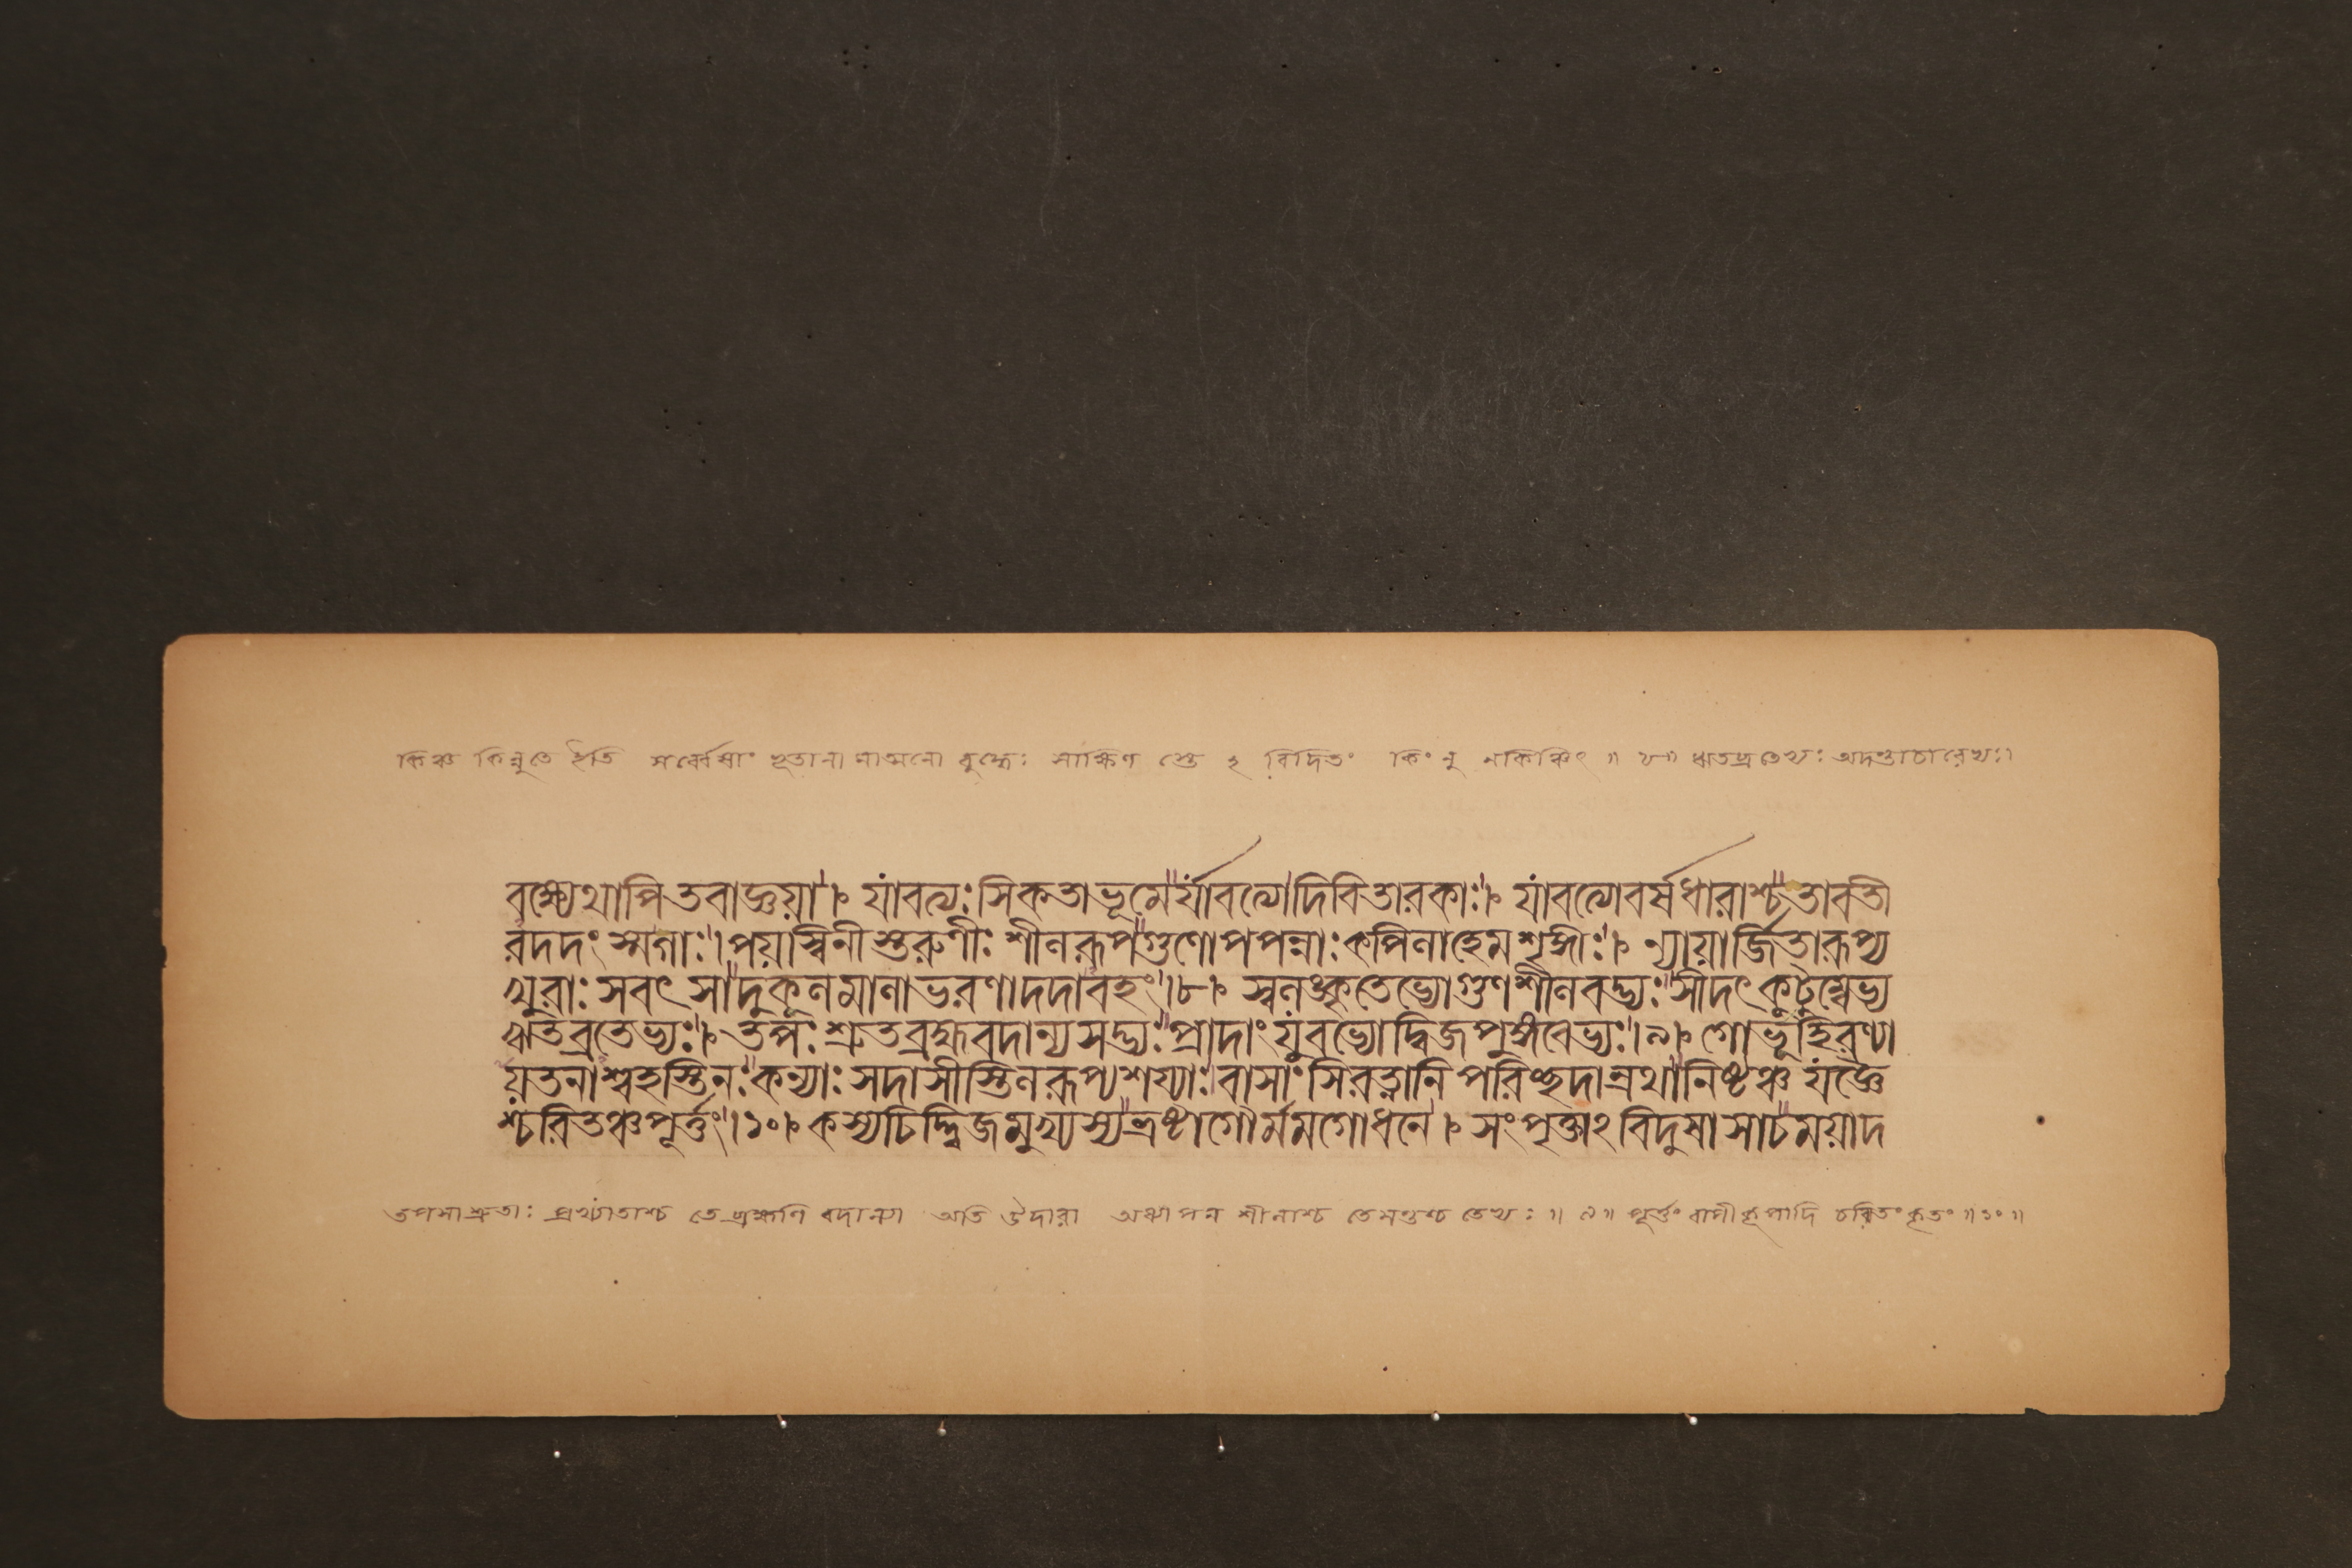 কিঞ্চ কিন্নুতে ইতি সর্ব্বেষাং ভূতানা মাত্মনো বুদ্ধেঃ সাক্ষিণ স্তে ২ বিদিতং কিং নু নকিঞ্চিৎ ॥ ৮॥ ঋতব্রতেভ্যঃ অদম্ভাচারেভ্যঃ।
বক্ষ্যেথাপি তবাজ্ঞয়া।৭। যাবত্যঃ সিকতাভূমের্যাবত্যোদিবিতারকাঃ। যাবত্যোবর্ষধারাশ্চ তাবতী
রদদং স্মগাঃ। পয়স্বিনীস্তরুণীঃ শীলরূপগুণোপপন্নাঃ কপিলাহেমশৃঙ্গীঃ। ন্যায়ার্জ্জিতারূপ্য
খুরাঃ সবৎ সাদুকূলমালাভরণাদদাবহং।৮। স্বলঙ্কৃতেভ্যোগুণশীলবদ্ভ্যঃ সীদৎ কুটুম্বেভ্য
ঋতব্রতেভ্যঃ। তপঃ শ্রুতব্রহ্মবদান্যসদ্ভ্যঃ প্রাদাং যুবভ্যোদ্বিজপুঙ্গবেভ্যঃ।৯। গোভূহিরণ্যা
য়তনাশ্বহস্তিনঃ কন্যাঃ সদাসীস্তিলরূপ্যশয্যাঃ বাসাংসিরত্নানি পরিচ্ছদান্রথানিষ্টঞ্চ যজ্ঞৈ
শ্চরিতঞ্চপূর্ত্তং।১০। কস্যচিদ্দ্বিজমুখ্যস্যভ্রষ্টাগৌর্ম্মমগোধনে। সংপৃক্তা২বিদুষাসাচময়াদ
তপসাশ্রুতাঃ প্রখ্যাতাশ্চ তেব্রহ্মণি বদান্যা অতি উদারা অধ্যাপন শীলাশ্চ তেসন্তশ্চ তেভ্যঃ ॥ ৯॥ পূর্ত্তং বাপীকূপাদি চরিতং কৃতং ॥১০॥